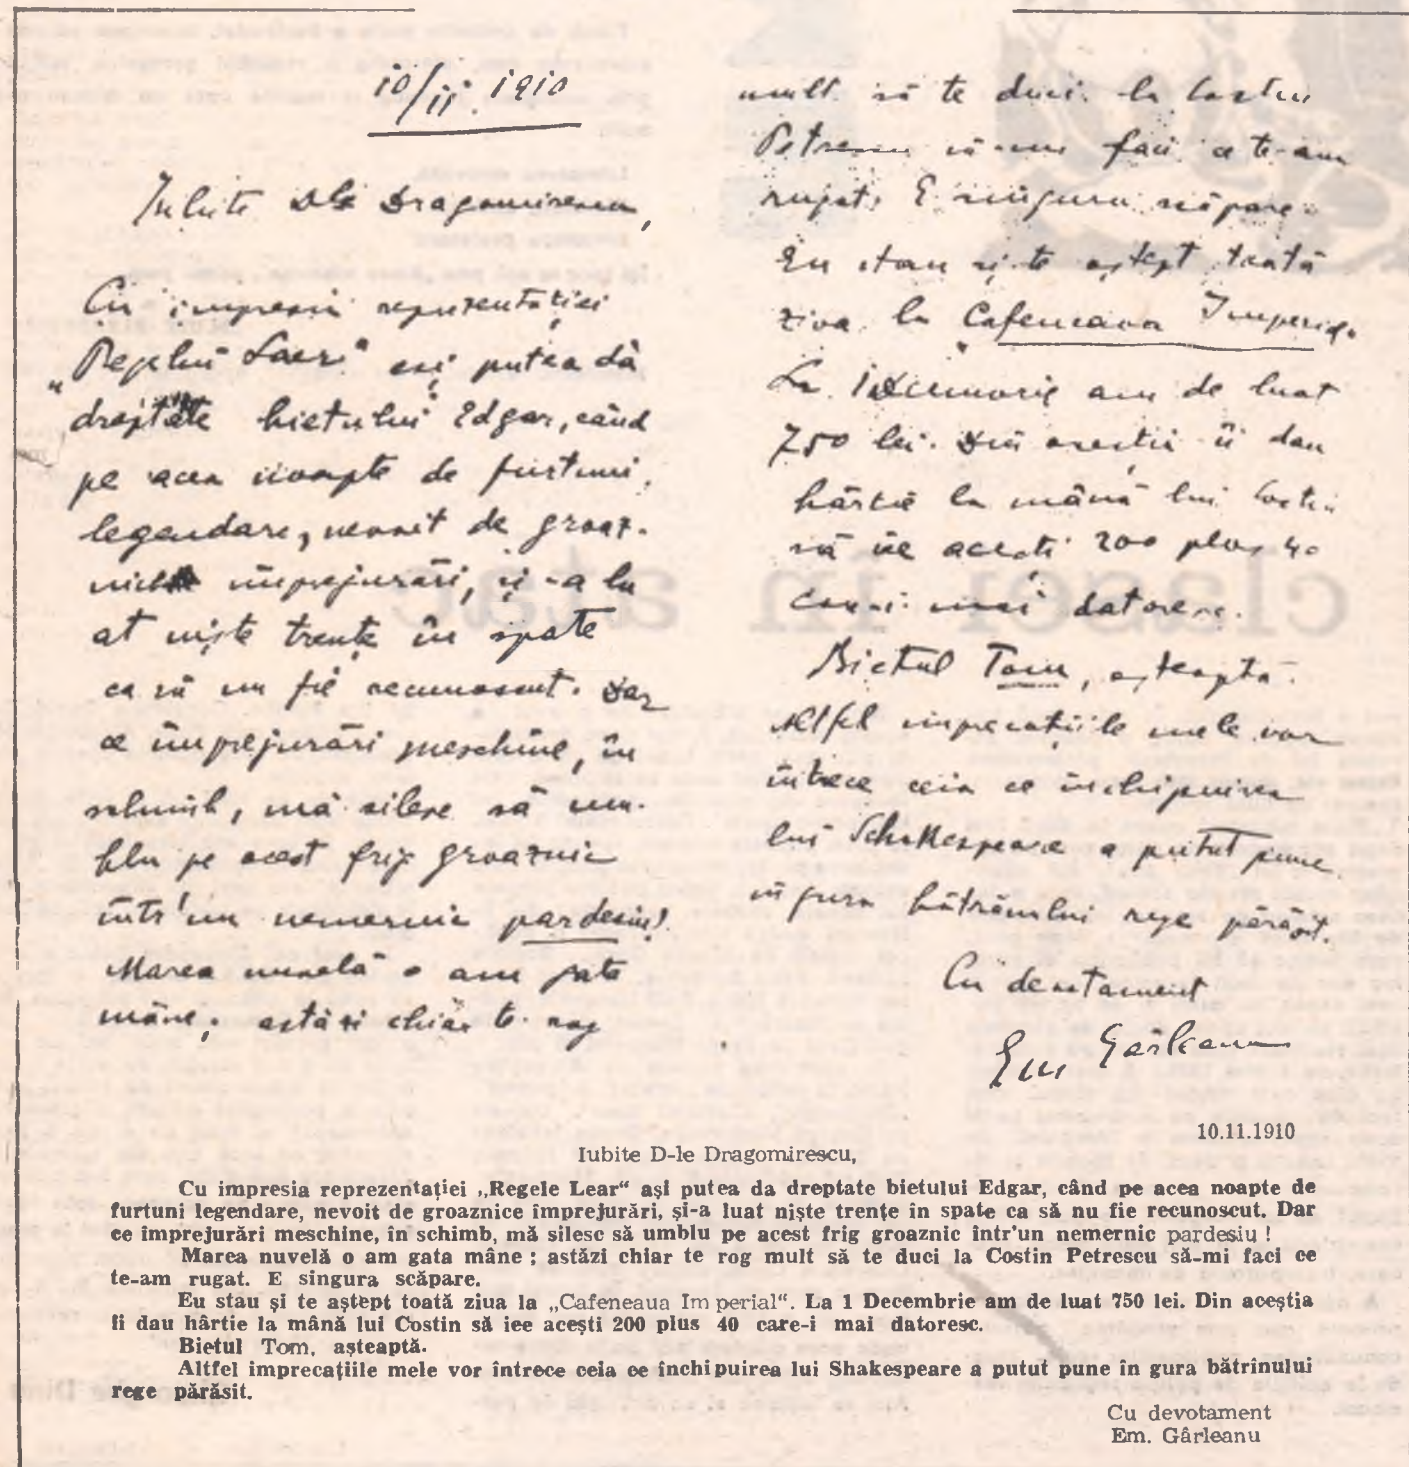 10/11. 1910
Iubite Dle Dragomirescu,
Cu impresia reprezentației
„Regelui Laer“ ași putea dà
dreptate bietului Edgar, când
pe acea noapte de furtuni
legendare, nevoit de groaz-
nice împrejurări, și-a lu
at niște trențe în spate
ca să nu fie recunoscut. Dar
ce împrejurări meschine, în
schimb, mă silesc să um-
blu pe acest frig groaznic
într'un nemernic pardesiu!
Marea nuvelă o am gata
mâne; astăzi chiar te rog
mult să te duci la Costin
Petrescu să-mi faci ce te-am
rugat. E singura scăpare.
Eu stau și te aștept toată
ziua la Cafeneaua Imperial.
La 1 Decemvrie am de luat
750 lei. Din aceștia îi dau
hârtie la mână lui Costin
să iee acești 200 plus 40
care-i mai datoresc.
Bietul Tom, așteaptă.
Altfel imprecațiile mele vor
întrece ceia ce închipuirea
lui Schakespeare a putut pune
în gura bătrânului rege părăsit.
Cu devotament
Em Gârleanu
10.11.1910
Iubite D-le Dragomirescu,
Cu impresia reprezentației „Regele Lear“ ași putea da dreptate bietului Edgar, când pe acea noapte de
furtuni legendare, nevoit de groaznice împrejurări, și-a luat niște trențe în spate ca să nu fie recunoscut. Dar
ce împrejurări meschine, în schimb, mă silesc să umblu pe acest frig groaznic într'un nemernic pardesiu !
Marea nuvelă o am gata mâne ; astăzi chiar te rog mult să te duci la Costin Petrescu să-mi faci ce
te-am rugat. E singura scăpare.
Eu stau și te aștept toată ziua la „Cafeneaua Im perial“. La 1 Decembrie am de luat 750 lei. Din aceștia
îi dau hârtie la mână lui Costin să iee acești 200 plus 40 care-i mai datoresc.
Bietul Tom, așteaptă.
Altfel imprecațiile mele vor întrece ceia ce închipuirea lui Shakespeare a putut pune în gura bătrînului
rege părăsit.
Cu devotament
Em. Gârleanu